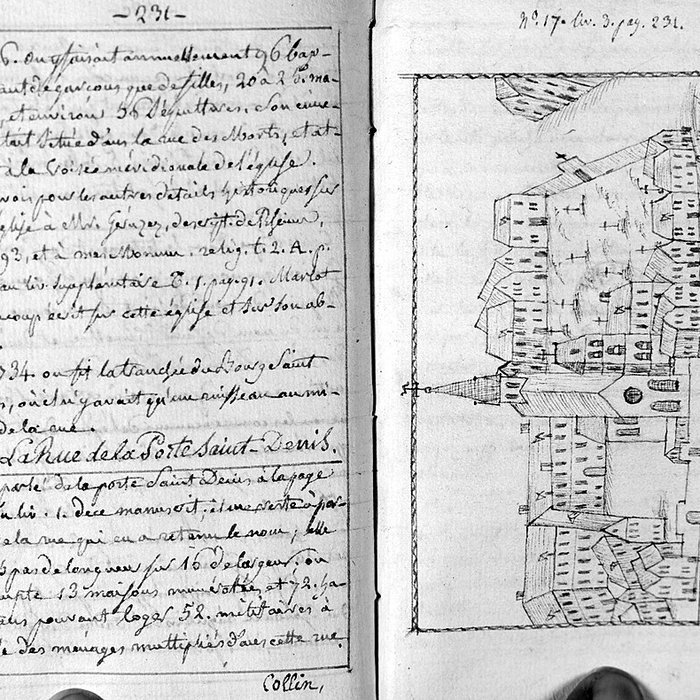 - 231 -
6. on y faisait annuellement 96 bap-
tant de garçons que de filles, 20 a 25. ma-
, et environ 36 sépultures. Son cime-
tait situé dans la rue des Morts, et at-
à la croisée méridionale de l'église.
voir pour les autres détails historiques sur
glise à Mr. Geruzez, descript. de Reims,
93, et à mes Monum. relig. t. 2. A. p.
au liv. supplémentaire T. 1. pag. 91. Marlot
coup écrit sur cette église et sur son ab-
734. on fit la tranchée du Bourg Saint
s, où il n'y avait qu'un ruisseau au mi-
de la rue.
La Rue de la Porte Saint-Denis.
parlé de la porte Saint Denis à la page
u liv. 1. de ce manuscrit, et une reste à par-
e la rue qui en a retenu le nom; elle
3 pas de longueur sur 16 de largeur, on
ompte 13 maisons numérotées, et 72. ha-
pouvant loger 52. militaires à
e des ménages multipliés dans cette rue.
Collin,
N.º 17. liv. 3. pag. 231.